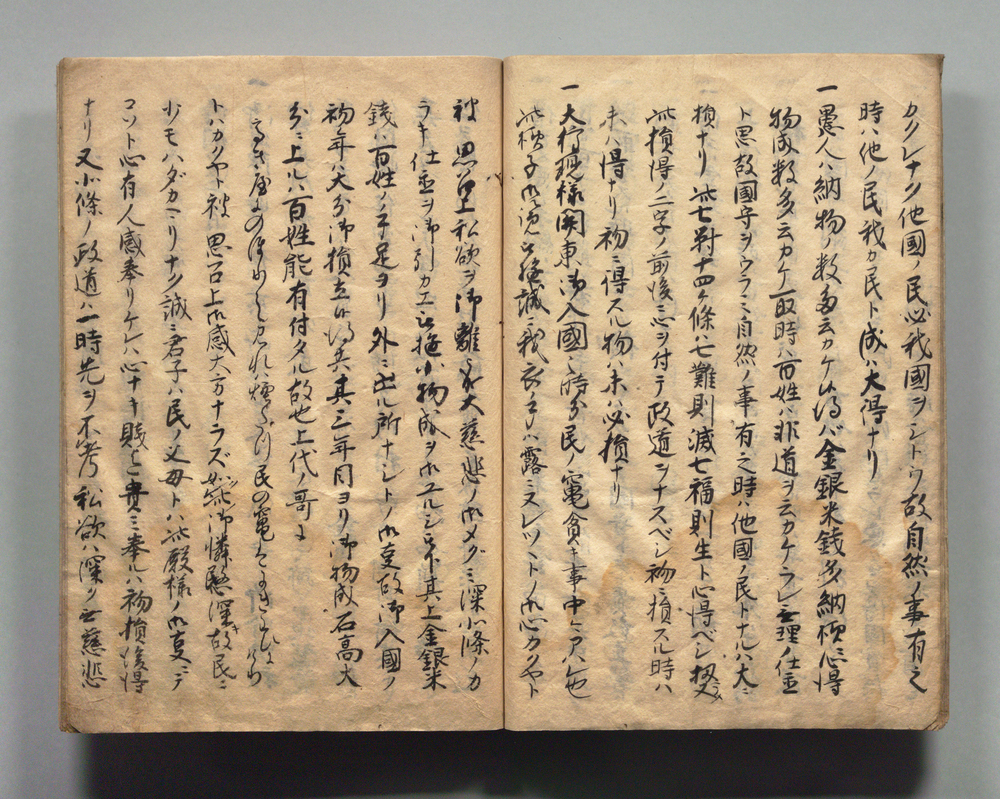 カクレナク他國ノ民必我國ヲシトウ故自然ノ事有之
時ハ他ノ民我カ民ト成ハ大得ナリ
一愚人ハ納物ノ数多云カケ候得バ金銀米銭多納様ニ心得
物成数多云カケ取時ハ百姓ハ非道ヲ云カケラレ無理ノ仕置
ト思故國守ヲウラミ自然ノ事有之時ハ他國ノ民トナルハ大ニ
損ナリ此七對十四ケ條ハ七難則滅七福則生ト心得ベシ扨又
此損得ノ二字ノ前後ニ心ヲ付テ政道ヲナスベシ初ニ損スル時ハ
末ハ得ナリ初ニ得スル物ハ末ハ必損ナリ
一大行現様関東御入國ノ時分民ノ竃貪キ事中々
此様子御覧誠ニ我衣手ハ露ニヌレツヽトノ御心カクヤト
被思召上私欲ヲ御離レ大慈悲ノ御メグミ深小條ノカ
ラキ仕置ヲ御引カエ小物成ヲ御ユルシ其上金銀米
銭ハ百姓ノ手足ヨリ外ニ出ル所ナシトノ御事故御入國ノ
初年ハ大分御損立候得共其三年目ヨリ御物成石高大
分ニ上ル八百姓能有付タル故也上代ノ哥ニ
高き屋にのほりて見れは煙たつ民の竃はにきはひにけり
トハカクヤト被思召上御感大方ナラズ如此御憐愍深故民ニ
少モハダカニリナク誠ニ君子ハ民ノ父母トハ此殿様ノ御事ニテ
コソト心有人感奉リケレハ心ナキ賤モ貴ミ奉ルハ初損後得
ナリ又小條ノ政道ハ一時先ヲ不考私欲ハ深ク無慈悲